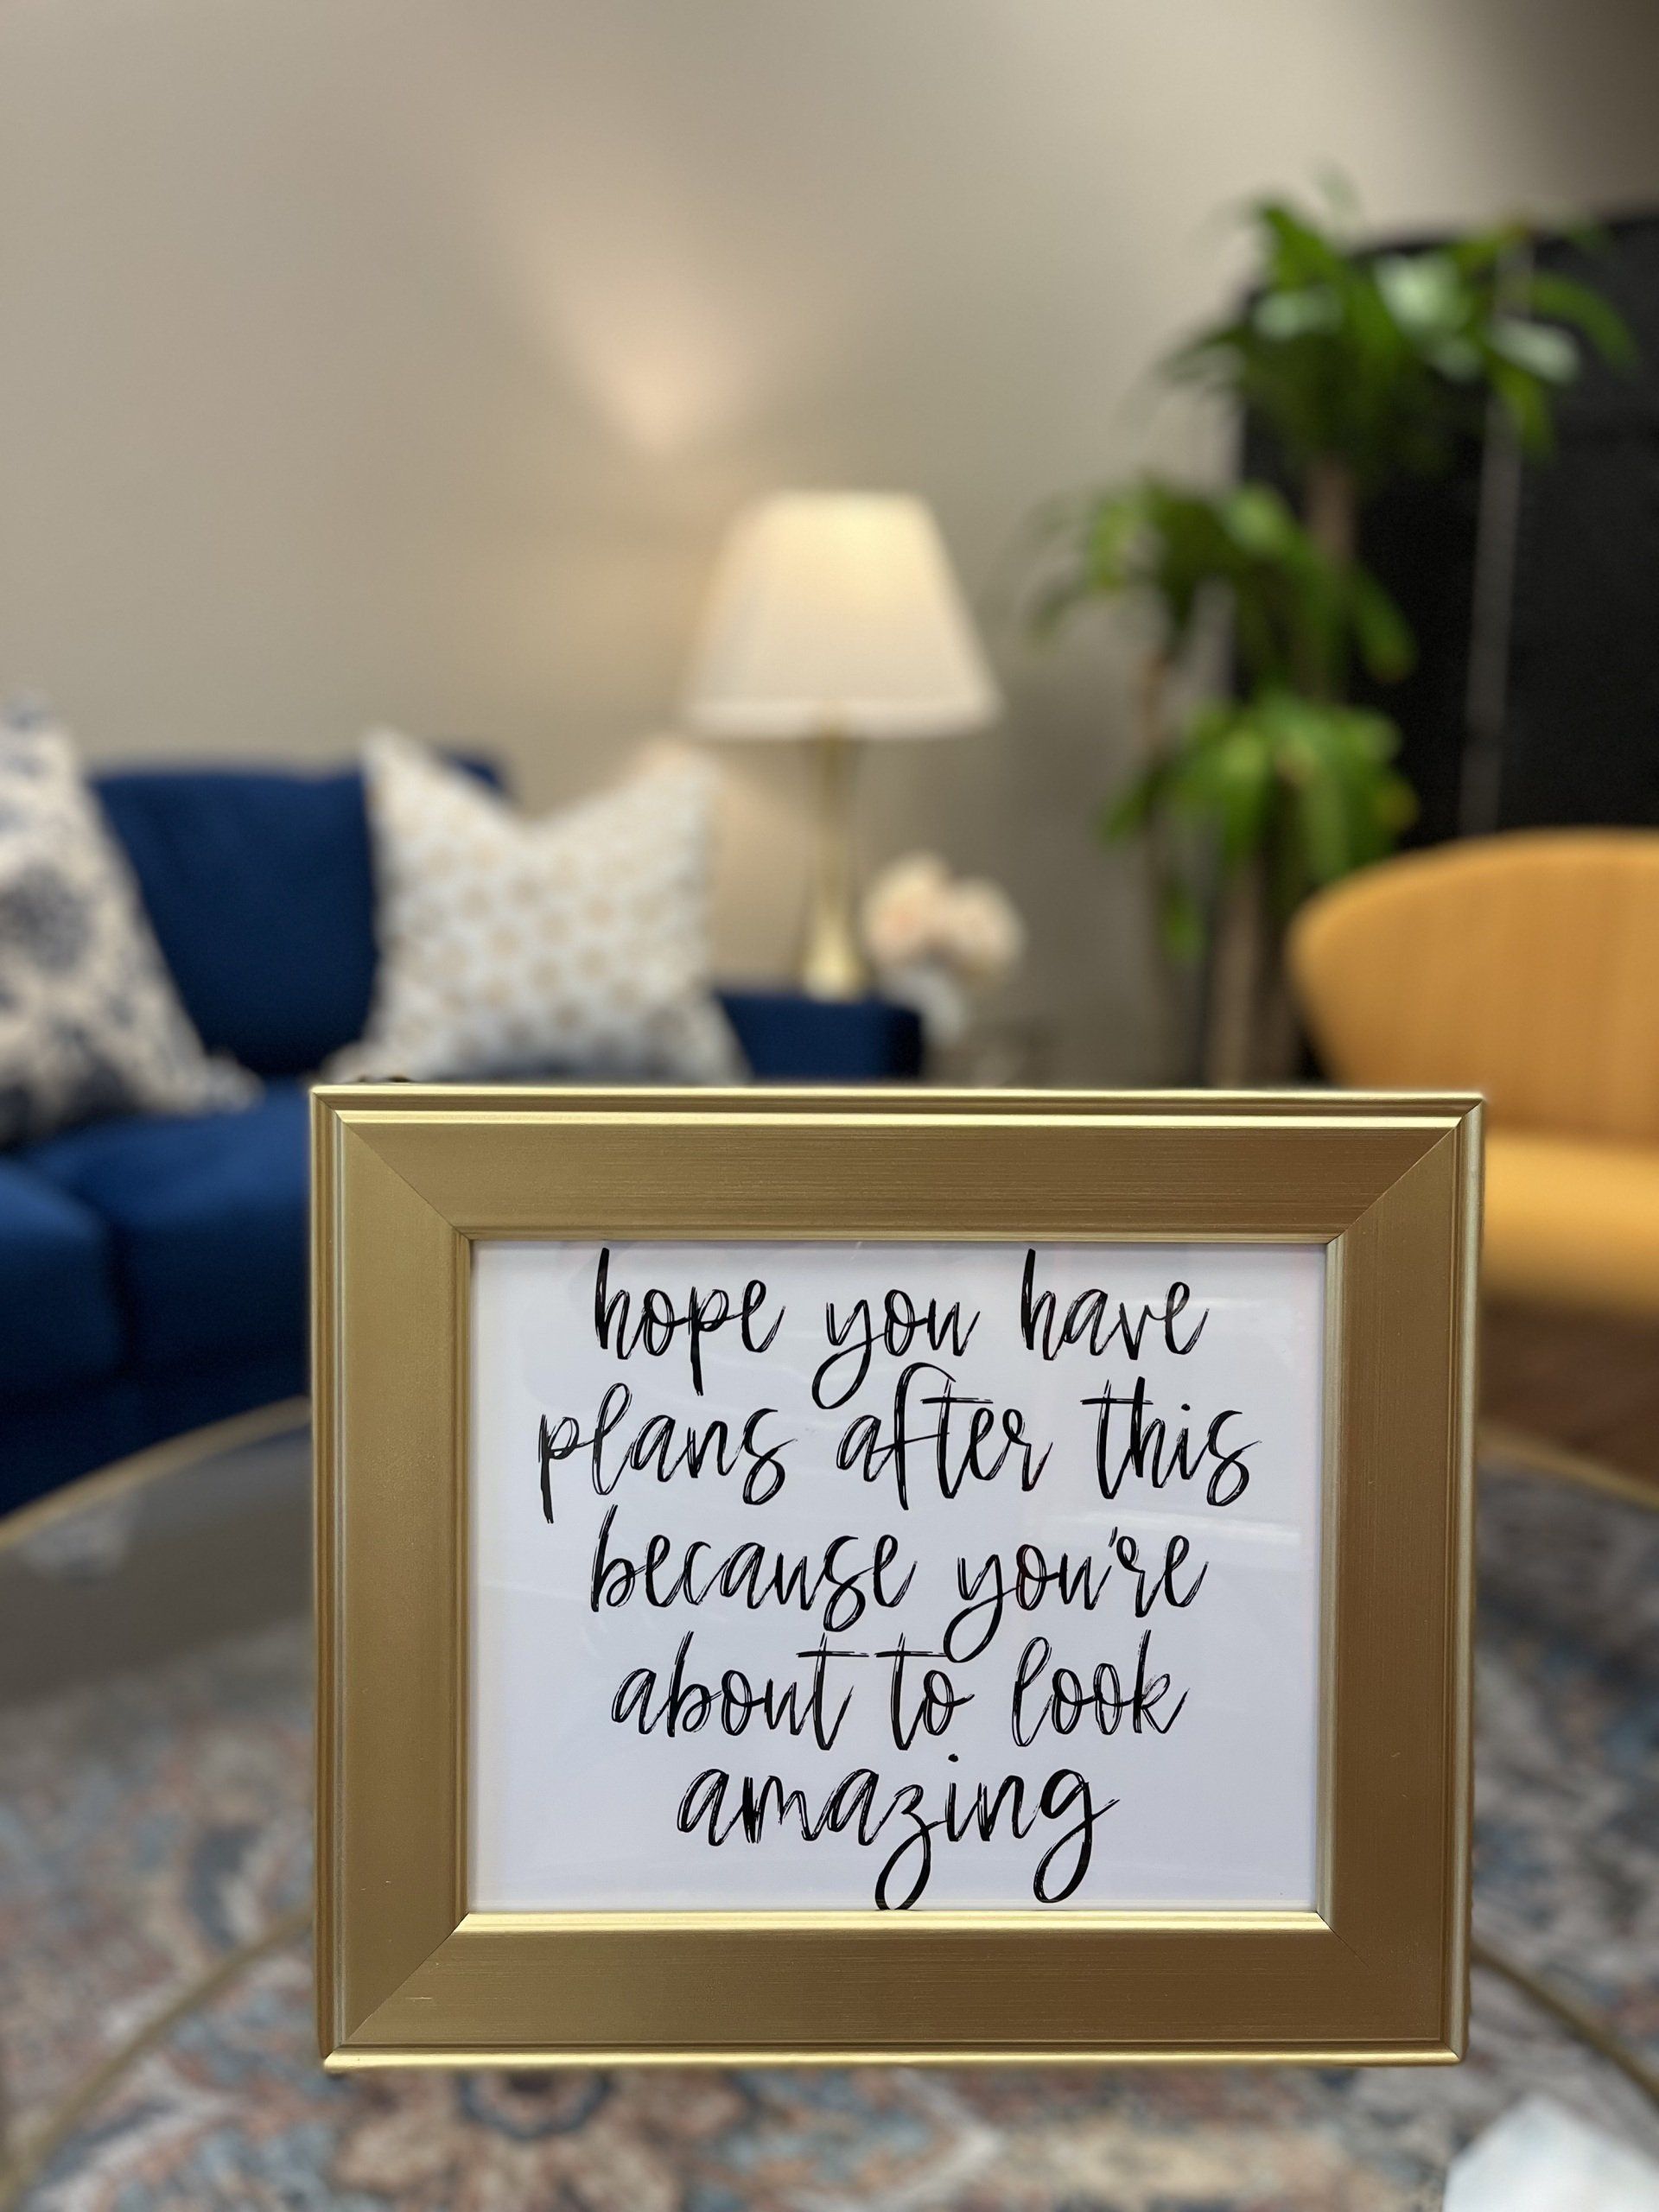 hope you have
plans after this
because you're
about to look
amazing